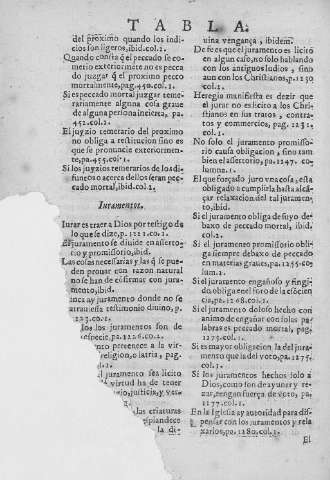 TABLA.
del proximo quando los indi-
cios son ligeros, ibid.col.1.
Quando constа q̃ el peccado se co-
metio exteriormẽte no es pecca
do juzgar q̃ el proximo pecco
mortalmente, pag.450.col.1.
Si es peccado mortal juzgar teme-
rariamente alguna cosa graue
de alguna persona incierta, pa.
452.col.1.
El juyzio temerario del proximo
no obliga a restitucion sino es
que se pronuncie exteriormen-
te, pa.455.col.1.
Si los juyzios temerarios de los di-
functos acerca dellos seran pec-
cado mortal, ibid.col.2.
Iuramentos.
Iurar es traer a Dios por testigo de
lo que se dize, p.1221.col.1.
El juramento se diuide en asserto-
rio y promissorio, ibid.
Las cosas necessarias y las q̃ se pue-
den prouar con razon natural
no se han de cõfirmar con jura-
mento, ibid.
ca ay juramento donde no se
atrae el testimonio diuino, p.
col.1.
los juramentos son de
especie, pa.1226.col.1.
pertenece a la vir-
religion, o latria, pag.
juramento sea licito
virtud ha de tener
justicia, y ver-
las criaturas
resplandece
la di-
uina vengança, ibidem.
De fe es que el juramento es licito
en algun caso, no solo hablando
con los antiguos Iudios, sino
aun con los Christianos, p.1230
.col.1.
Heregia manifiesta es dezir que
el jurar no es licito a los Chri-
stianos en sus tratos, contra-
tos y commercios, pag.1231.
col.1.
No solo el juramento promisso-
rio causa obligacion, sino tam-
bien el assertorio, pa.1247. co-
lumna.1.
El que forçado juro vna cosa, esta
obligado a cumplirla hasta alcã-
çar relaxacion del tal juramen-
to, ibid.
Si el juramento obliga de suyo de-
baxo de peccado mortal, ibid.
col.2.
Si el juramento promissorio obli-
ga siempre debaxo de peccado
en materias graues, pa.1255.co-
lum.1.
Si el juramento engañoso y fingi-
do obliga en el foro de la cõcien
cia, pa.1268.col.1.
Si el juramento doloso hecho con
animo de engañar con solas pa-
labras es peccado mortal, pag.
1273.col.1.
Si es mayor obligacion la del jura-
mento que la del voto, pa.1275.
col.1.
Si los juramentos hechos solo a
Dios, como son de ayunar y re-
zar, tengan fuerça de voto, pa.
1277.col.1.
En la Iglesia ay autoridad para dis-
pensar con los juramentos y rela
xarlos, pa.1280.col.1.
El